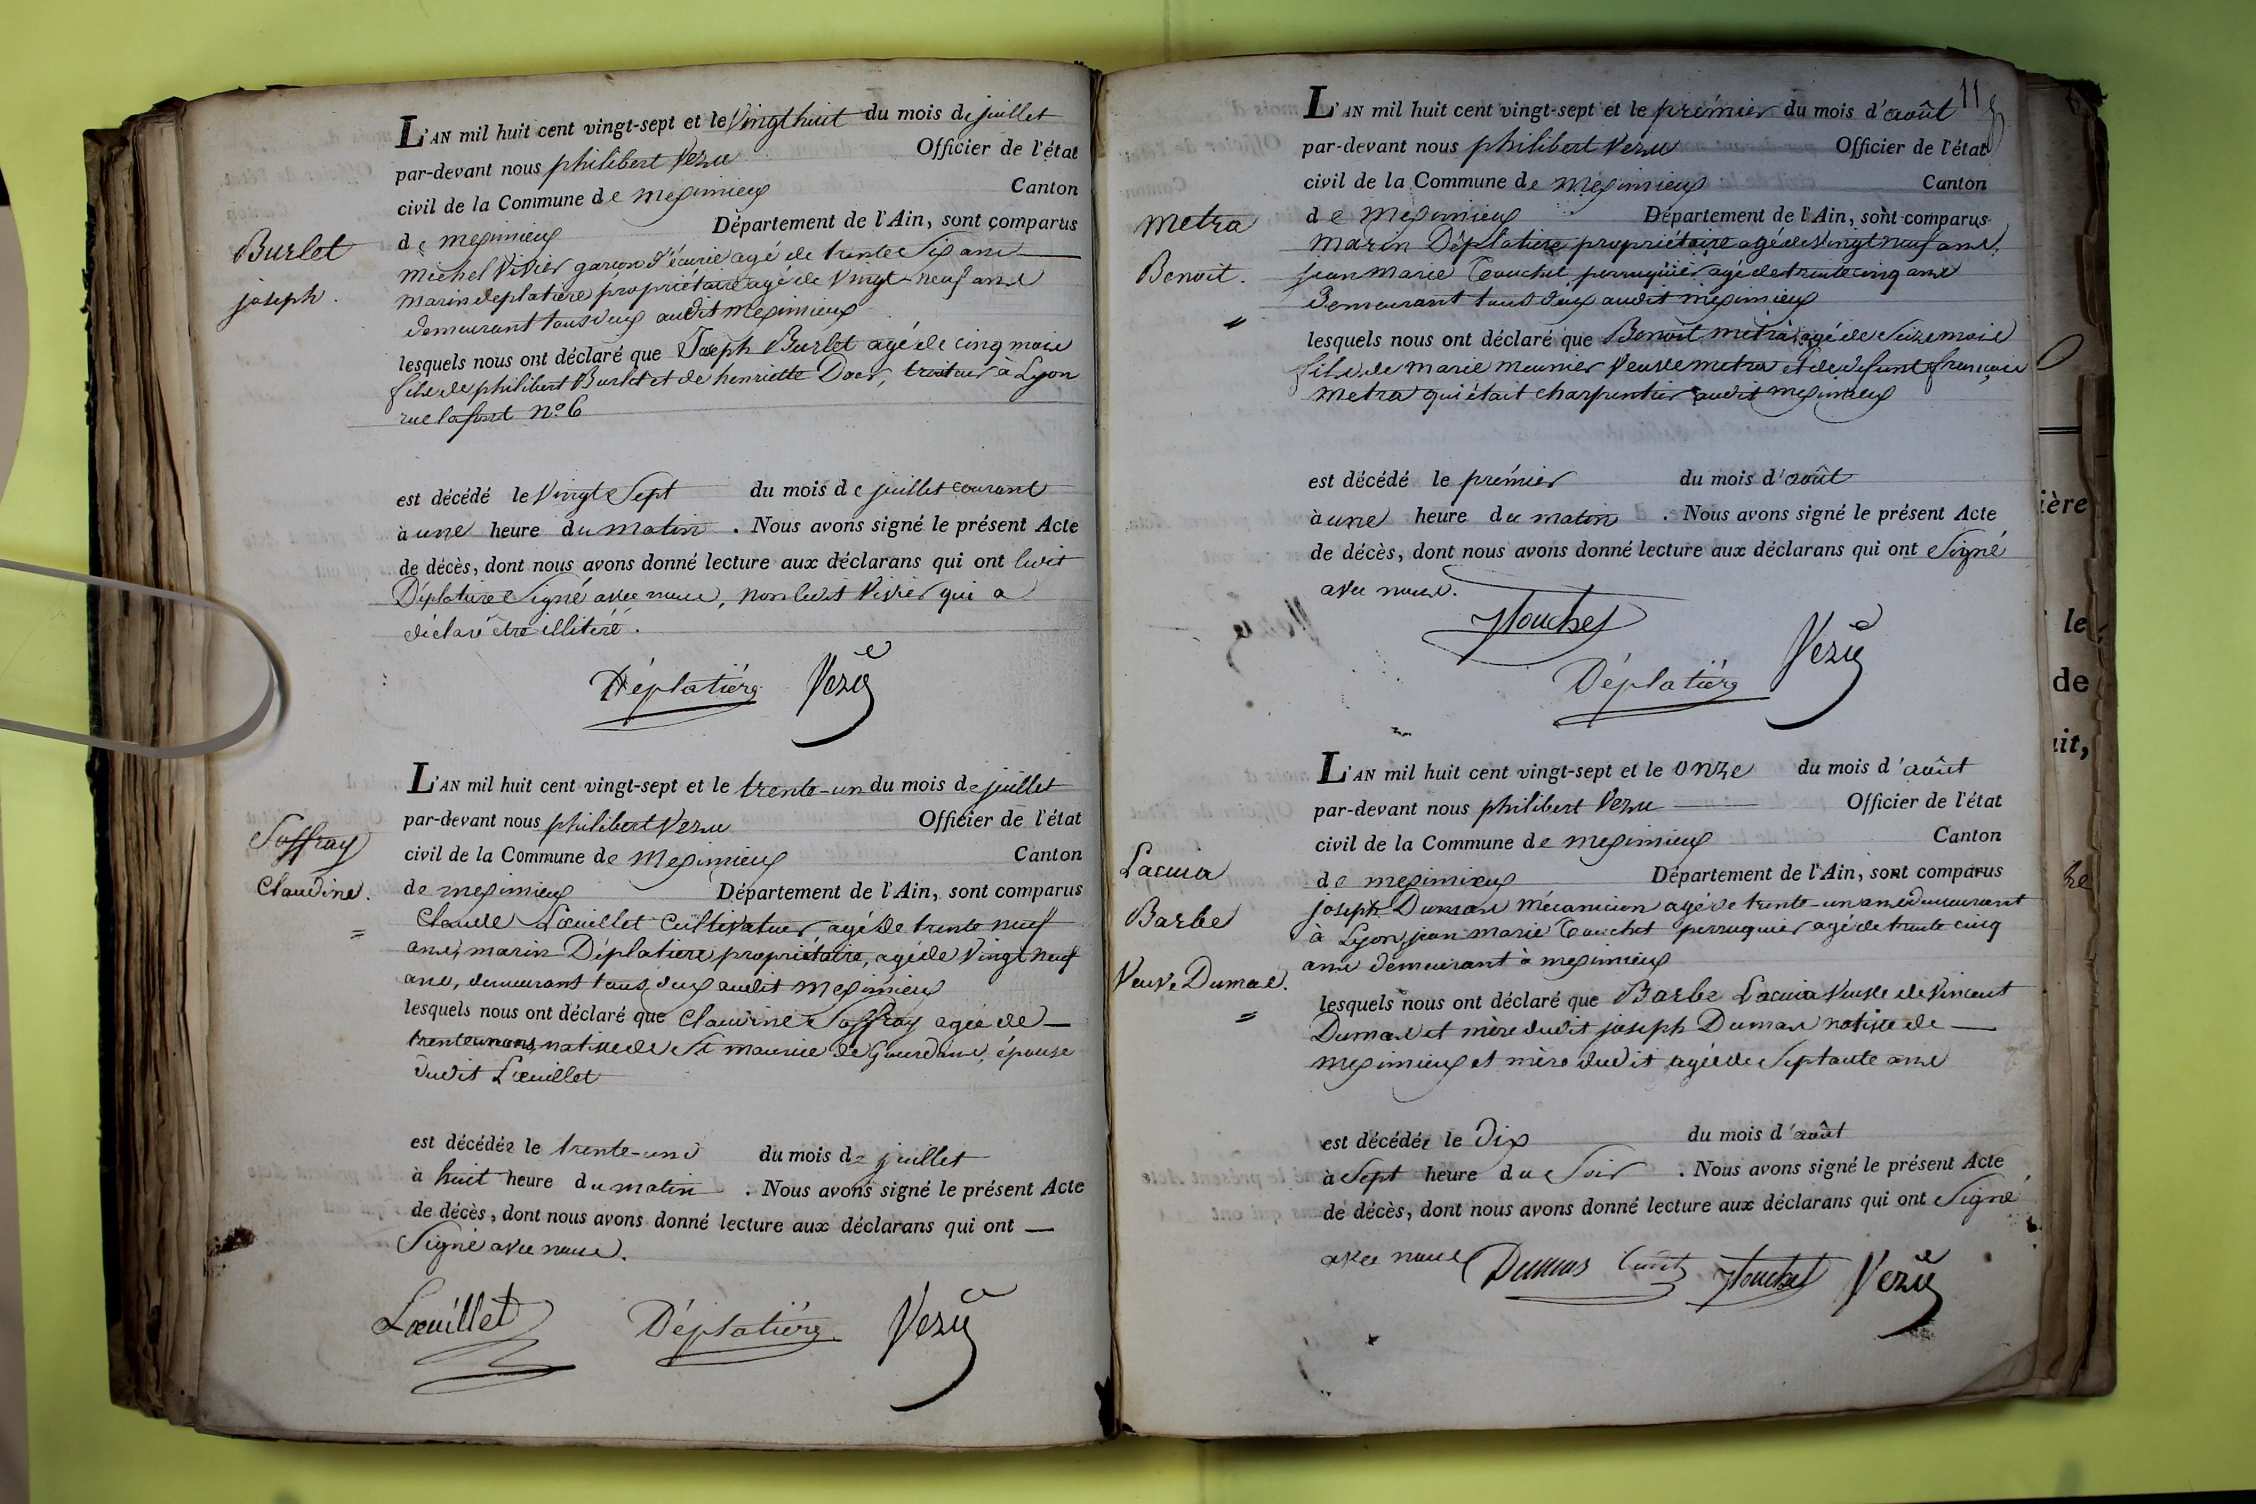 L'AN mil huit cent vingt-sept et le Vingt huit du mois de juillet
par-devant nous philibert Vezu Officier de l'état
civil de la Commune de meximieux Canton
de meximieux Département de l'Ain, sont comparus
michel Vivier garçon d'écurie agé de trente Six ans
marin deplatiere propriétaire agé de Vingt-neuf ans
demeurant tous deux audit meximieux
lesquels nous ont déclaré que Joseph Burlet agé de cinq mois
fils de philibert Burlet et de henriette, traiteur à Lyon
rue lafont n° 6
Burlet
joseph.
est décédé le Vingt Sept du mois de juillet courant
à une heure du matin. Nous avons signé le présent Acte
de décès, dont nous avons donné lecture aux déclarans qui ont ledit
Déplatiere Signé avec nous, non ledit Vivier qui a
déclaré être illitéré.
Déplatière Vezu
L'AN mil huit cent vingt-sept et le trente-un du mois de juillet
par-devant nous philibert Vezu Officier de l'état
civil de la Commune de Meximieux Canton
de meximieux Département de l'Ain, sont comparus
Claude Lœuillet Cultivateur, agé de trente neuf
ans, marin Déplatiere propriétaire, agé de Vingt neuf
ans, demeurans tous deux audit Meximieux
lesquels nous ont déclaré que Claudine Soffray agée de
trente un ans, native de St maurice de Gourdans, épouse
dudit Lœuillet
Soffray
Claudine.
=
est décédée le trente-un du mois de juillet
à huit heure du matin. Nous avons signé le présent Acte
de décès, dont nous avons donné lecture aux déclarans qui ont
Signé avec nous.
Lœuillet Déplatière Vezu
11
L'AN mil huit cent vingt-sept et le prémier du mois d'août
par-devant nous philibert Vezu Officier de l'état
civil de la Commune de Meximieux Canton
de Meximieux Département de l'Ain, sont comparus
Marin Déplatiere propriétaire agé de Vingt neuf ans,
jean Marie Touchet perruquier agé de trente cinq ans
Demeurant tous deux audit meximieux
lesquels nous ont déclaré que Benoit metra, agé de Seize mois
fils de marie meunier Veuve metra et de defunt françois
Metra qui était charpentier audit meximieux
metra
Benoit.
=
est décédé le prémier du mois d'août
à une heure du matin. Nous avons signé le présent Acte
de décès, dont nous avons donné lecture aux déclarans qui ont Signé
avec nous.
Touchet
Déplatière Vezu
L'AN mil huit cent vingt-sept et le onze du mois d'août
par-devant nous philibert Vezu Officier de l'état
civil de la Commune de meximieux Canton
de meximieux Département de l'Ain, sont comparus
joseph Dumas Mécanicien agé de trente-un ans demeurant
à Lyon, jean marie Touchet perruquier agé de trente cinq
ans demeurant à meximieux
lesquels nous ont déclaré que Barbe Lacuia Veuve de Vincent
Dumas et mère dudit joseph Dumas native de
meximieux et mère dudit agée de Septante ans
Lacuia
Barbe
Veuve Dumas.
=
est décédée le Dix du mois d'août
à Sept heure du Soir. Nous avons signé le présent Acte
de décès, dont nous avons donné lecture aux déclarans qui ont Signé
avec nous Dumas Touchet Vezu
ière
le
de
it,